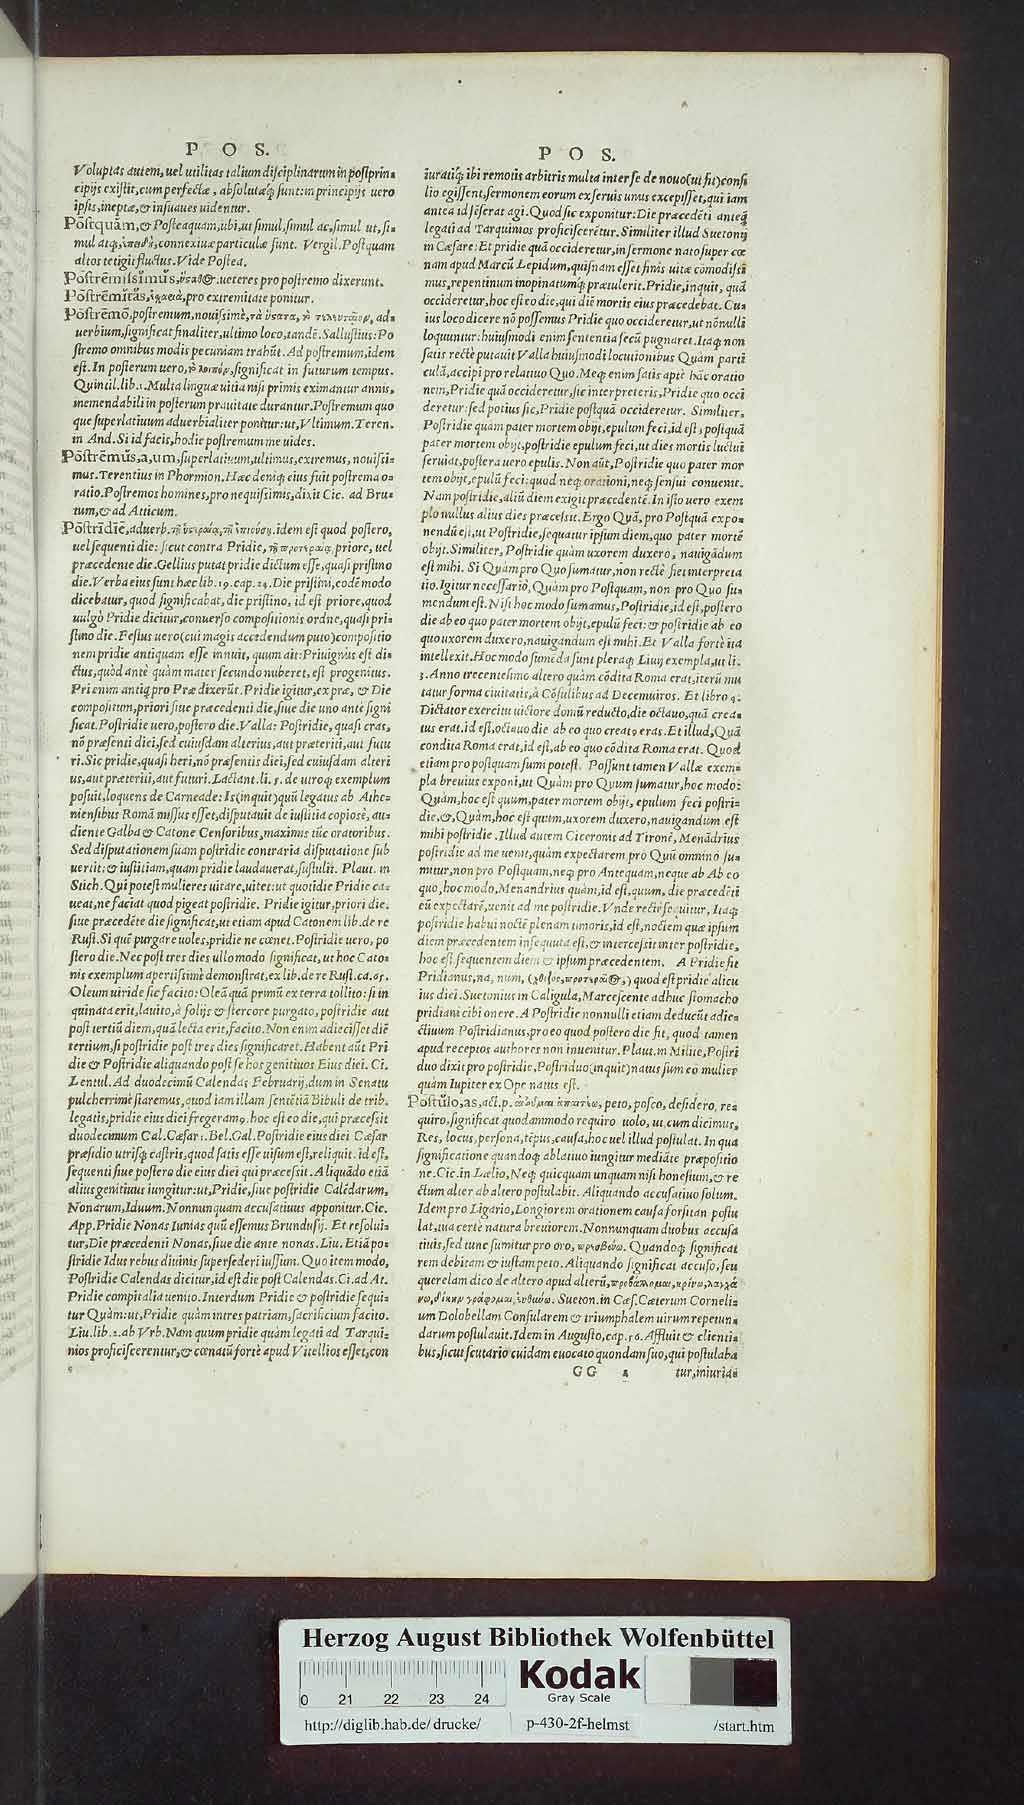 P O S.
Voluptas autem, uel utilitas talium disciplinarum in postprin=
cipijs existit, cum perfectæ, absolutæq́; sunt: in principijs uero
ipsis, ineptæ, & insuaues uidentur.
Postquàm, & Posteaquam, ubi, ut simul, simul ac, simul ut, si=
mul atq;, connexiuæ particulæ sunt. Vergil. Postquam
altos tetigit fluctus. Vide Postea.
Postremissimus, ueteres pro postremo dixerunt.
Postremitas, pro extremitate ponitur.
Postremò, postremum, nouissimè, τὰ ὕστατα, ad=
uerbium, significat finaliter, ultimo loco, tandē. Sallustius: Po
stremo omnibus modis pecuniam trahūt. Ad postremum, idem
est. In posterum uero, significat in futurum tempus.
Quintil. lib. 1. Multa linguæ uitia nisi primis eximantur annis,
inemendabili in posterum prauitate durantur. Postremum quo
que superlatiuum aduerbialiter ponitur: ut, Vltimum. Teren.
in And. Si id facis, hodie postremum me uides.
Postremus, a, um, superlatiuum, ultimus, extremus, nouissi=
mus. Terentius in Phormion. Hæc deniq; eius fuit postrema o=
ratio. Postremos homines, pro nequissimis, dixit Cic. ad Bru=
tum, & ad Atticum.
Postridiè, aduerb. τῇ ὑστεραίᾳ, τῇ ἐπιούσῃ. idem est quod postero,
uel sequenti die: sicut contra Pridie, τῇ προτεραίᾳ, priore, uel
præcedente die. Gellius putat pridie dictum esse, quasi pristino
die. Verba eius sunt hæc lib. 19. cap. 24. Die pristini, eodē modo
dicebatur, quod significabat, die pristino, id est priore, quod
uulgò Pridie dicitur, conuerso compositionis ordne, quasi pri=
stino die. Festus uero (cui magis accedendum puto) compositio
nem pridie antiquam esse innuit, quum ait: Priuignus est di=
ctus, quòd antè quàm mater secundo nuberet, est progenitus.
Pri enim antiq; pro Præ dixerūt. Pridie igitur, ex præ, & Die
compositum, priori siue præcedenti die, siue die uno antè signi
ficat. Postridie uero, postero die. Valla: Postridie, quasi cras,
nō præsenti diei, sed cuiusdam alterius, aut præteriti, aut futu
ri. Sic pridie, quasi heri, nō præsentis diei, sed cuiusdam alteri
us, aut præteriti, aut futuri. Lactant. li. 5. de utroq; exemplum
posuit, loquens de Carneade: Is (inquit) quū legatus ab Athe=
niensibus Romā missus esset, disputauit de iustitia copiosè, au=
diente Galba & Catone Censoribus, maximus tūc oratoribus.
Sed disputationem suam postridie contraria disputatione sub
uertit: & iustitiam, quam pridie laudauerat, sustulit. Plaut. in
Stich. Qui potest mulieres uitare, uitet: ut quotidie Pridie ca=
ueat, ne faciat quod pigeat postridie. Pridie igitur, priori die,
siue præcedēte die significat, ut etiam apud Catonem lib. de re
Rust. Si quē purgare uoles, pridie ne cœnet. Postridie uero, po
stero die. Nec post tres dies ullo modo significat, ut hoc Cato=
nis exemplum apertissimè demonstrat, ex lib. de re Rust. ca. 65.
Oleum uiride sic facito: Oleā quā primū ex terra tollito: si in
quinata erit, lauito, à folijs & stercore purgato, postridie aut
post tertiū diem, quā lecta erit, facito. Non enim adiecisset diē
tertium, si postridie post tres dies significaret. Habent aūt Pri
die & Postridie aliquando post se hos genitiuos Eius diei. Ci.
Lentul. Ad duodecimū Calendas Februarij, dum in Senatu
pulcherrimè staremus, quod iam illam sentētiā Bibuli de trib.
legatis, pridie eius diei fregeram9, hoc est eo die, qui præcessit
duodecimum Cal. Cæsar 1. Bel. Gal. Postridie eius diei Cæsar
præsidio utrisq; castris, quod satis esse uisum est, reliquit. id est,
sequenti siue postero die eius diei qui præcessit. Aliquādo etiā
alius genitiuus iungitur: ut, Pridie, siue postridie Calēdarum,
Nonarum, Iduum. Nonnunquam accusatiuus apponitur. Cic.
App. Pridie Nonas Iunias quū essemus Brundusij. Et resolui=
tur, Die præcedenti Nonas, siue die ante nonas. Liu. Etiā po=
stridie Idus rebus diuinis supersederi iussum. Quo item modo,
Postridie Calendas dicitur, id est die post Calendas. Ci. ad At.
Pridie compitalia uenito. Interdum Pridie & postridie sequi=
tur Quàm: ut, Pridie quàm intres patriam, sacrificium facito.
Liu. lib. 2. ab Vrb. Nam quum pridie quàm legati ad Tarqui=
nios proficiscerentur, & cœnatū fortè apud Vitellios esset, con
P O S.
iuratiq́; ibi remotis arbitris multa inter se de nouo (ut fit) consi
lio egissent, sermonem eorum ex seruis unus excepisset, qui iam
antea id sēserat agi. Quod sic exponitur: Die præcedēti anteq̃
legati ad Tarquinios proficiscerētur. Similiter illud Suetonij
in Cæsare: Et pridie quā occideretur, in sermone nato super cœ
nam apud Marcū Lepidum, quisnam esset finis uitæ cōmodissi
mus, repentinum inopinatumq́; prætulerit. Pridie, inquit, quā
occideretur, hoc est eo die, qui diē mortis eius præcedebat. Cu=
ius loco dicere nō possemus Pridie quo occideretur, ut nōnulli
loquuntur: huiusmodi enim sententia secū pugnaret. Itaq; non
satis rectè putauit Valla huiusmodi locutionibus Quàm parti
culā, accipi pro relatiuo Quo. Neq; enim satis aptè hāc oratio
nem, Pridie quā occideretur, sic interpreteris, Pridie quo occi
deretur: sed potius sic, Pridie postquā occideretur. Similiter,
Postridie quàm pater mortem obijt, epulum feci, id est, postquā
pater mortem obijt, postridie epulum feci, ut dies mortis luctui
seruiat, postera uero epulis. Non aūt, Postridie quo pater mor
tem obijt, epulū feci: quod neq; orationi, neq; sensui conuenit.
Nam postridie, aliū diem exigit præcedentē. In isto uero exem
plo nullus alius dies præcessit. Ergo Quā, pro Postquā expo=
nendū est, ut Postridie, sequatur ipsum diem, quo pater mortē
obijt. Similiter, Postridie quàm uxorem duxero, nauigādum
est mihi. Si Quàm pro Quo sumatur, non rectè fiet interpreta
tio. Igitur necessariò, Quàm pro Postquam, non pro Quo su=
mendum est. Nisi hoc modo sumamus, Postridie, id est, postero
die ab eo quo pater mortem obijt, epulū feci: & postridie ab eo
quo uxorem duxero, nauigandum est mihi. Et Valla fortè ita
intellexit. Hoc modo sumēda sunt pleraq; Liuij exempla, ut li.
3. Anno trecentesimo altero quàm cōdita Roma erat, iterū mu
tatur forma ciuitatis, à Cōsulibus ad Decemuiros. Et libro 4.
Dictator exercitu uictore domū reducto, die octauo, quā crea=
tus erat. id est, octauo die ab eo quo creat9 eras. Et illud, Quā
condita Roma erat, id est, ab eo quo cōdita Roma erat. Quod
etiam pro postquam sumi potest. Possunt tamen Vallæ exem=
pla breuius exponi, ut Quàm pro Quum sumatur, hoc modo:
Quàm, hoc est quum, pater mortem obijt, epulum feci postri=
die, &, Quàm, hoc est quum, uxorem duxero, nauigandum est
mihi postridie. Illud autem Ciceronis ad Tironē, Menādrius
postridie ad me uenit, quàm expectarem pro Quū omnino su=
mitur, non pro Postquam, neq; pro Antequam, neque ab Ab eo
quo, hoc modo, Menandrius quàm, id est, quum, die præcedēti
eū expectarē, uenit ad me postridie. Vnde rectè sequitur, Itaq;
postridie habui noctē plenam timoris, id est, noctiem quæ ipsum
diem præcedentem insequuta est, & intercessit inter postridie,
hoc est sequentem diem & ipsum præcedentem. A Pridie fit
Pridianus, na, num, quod est pridie alicu
ius diei. Suetonius in Caligula, Marcescente adhuc stomacho
pridiani cibi onere. A Postridie nonnulli etiam deducūt adie=
ctiuum Postridianus, pro eo quod postero die fit, quod tamen
apud receptos authores non inuenitur. Plaut. in Milite, Postri
duo dixit pro postridie, Postriduo (inquit) natus sum eo mulier
quàm Iupiter ex Ope natus est.
Postulo, as, act. p. peto, posco, desidero, re=
quiro, significat quodammodo requiro uolo, ut cum dicimus,
Res, locus, persona, tēpus, causa, hoc uel illud postulat. In qua
significatione quandoq; ablatiuo iungitur mediāte præpositio
ne. Cic. in Lælio, Neq; quicquam unquam nisi honestum, & re
ctum alter ab altero postulabit. Aliquando accusatiuo solum.
Idem pro Ligario, Longiorem orationem causa forsitan postu
lat, tua certè natura breuiorem. Nonnunquam duobus accusa
tiuis, sed tunc sumitur pro oro, πρεσβεύω. Quandoq; significat
rem debitam & iustam peto. Aliquando significat accuso, seu
querelam dico de altero apud alterū,
Sueton. in Cæs. Cæterum Corneli=
um Dolobellam Consularem & triumphalem uirum repetun=
darum postulauit. Idem in Augusto, cap. 56. Affuit & clienti=
bus, sicut scutario cuidam euocato quondam suo, qui postulaba
GG 2 tur, iniuriā=
Herzog August Bibliothek Wolfenbüttel
Kodak
Gray Scale
0 21 22 23 24
http://diglib.hab.de/drucke/ p-430-2f-helmst /start.htm